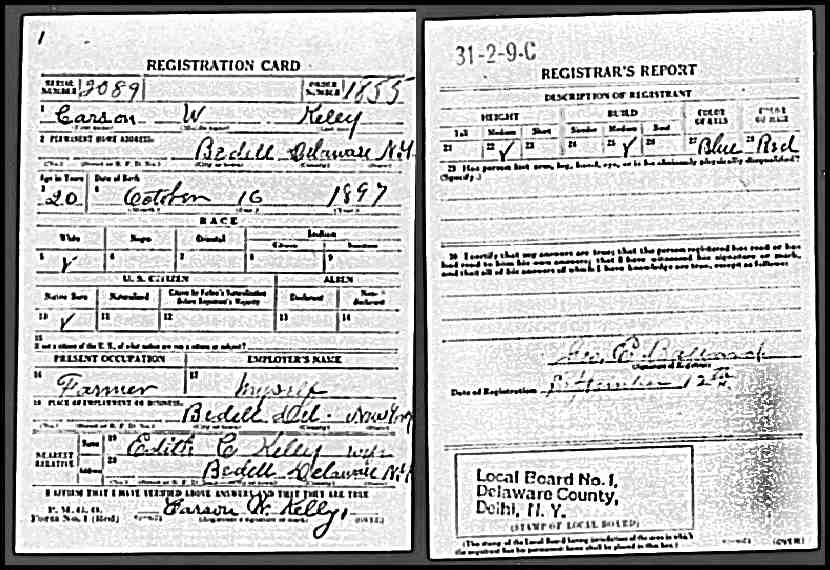 1
REGISTRATION CARD
SERIAL NUMBER 2089 ORDER NUMBER 1855
1 Carson W Kelley
(First name) (Middle name) (Last name)
2 PERMANENT HOME ADDRESS:
Bedell Delaware N.Y.
(No.) (Street or R. F. D. No.) (City or town) (County) (State)
Age in Years Date of Birth
3 20 4 October 16 1897
(Month.) (Day.) (Year.)
RACE
White Negro Oriental Indian
Citizen Noncitizen
5 ✓ 6 7 8 9
U. S. CITIZEN ALIEN
Native Born Naturalized Citizen by Father's Naturalization Before Registrant's Majority Declarant Non-declarant
10 ✓ 11 12 13 14
15
If not a citizen of the U. S., of what nation are you a citizen or subject?
PRESENT OCCUPATION EMPLOYER'S NAME
16 Farmer 17 Myself
18 PLACE OF EMPLOYMENT OR BUSINESS:
Bedell Del. New York
(No.) (Street or R. F. D. No.) (City or town) (County) (State)
NEAREST RELATIVE Name 19 Edith C Kelley wife
Address 20 Bedell Delaware N.Y.
(No.) (Street or R. F. D. No.) (City or town) (County) (State)
I AFFIRM THAT I HAVE VERIFIED ABOVE ANSWERS AND THAT THEY ARE TRUE
P. M. G. O.
Form No. 1 (Red) Carson W. Kelley,
(Registrant's signature or mark) (OVER)
31-2-9-C
REGISTRAR'S REPORT
DESCRIPTION OF REGISTRANT
HEIGHT BUILD COLOR OF EYES COLOR OF HAIR
Tall Medium Short Slender Medium Stout
21 22 ✓ 23 24 25 ✓ 26 27 Blue 28 Red
29 Has person lost arm, leg, hand, eye, or is he obviously physically disqualified?
(Specify.)
30 I certify that my answers are true; that the person registered has read or has
had read to him his own answers; that I have witnessed his signature or mark,
and that all of his answers of which I have knowledge are true, except as follows:
(Signature of Registrar)
Date of Registration September 12th
Local Board No. 1,
Delaware County,
Delhi, N. Y.
(STAMP OF LOCAL BOARD)
(The stamp of the Local Board having jurisdiction of the area in which
the registrant has his permanent home shall be placed in this box.) (OVER)